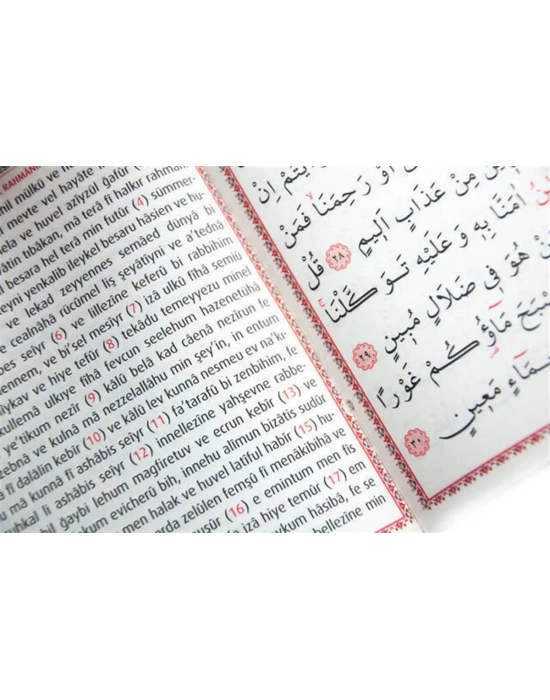 RAHMAN
mil mülkü ve
mevte vel hayâte
ela ve huvel azîyzül gafûr
vâtin tıbâkan, mâ terâ fî halkır rahmâ
l besara hel terâ min futûr (4) sümmer-
teyni yenkalib ileykel besaru hâsien ve hu-
ve lekad zeyyennes semâed dünyâ bi
ve cealnâhâ rücûmel liş şeyâtiyni ve a'tednâ
bes seîyr (6) ve lillezîne keferû bi rabbihim
ennem, ve bi'sel mesîyr (7) izâ ulkû fîhâ semiû
îykav ve hiye tefûr (8) tekâdu temeyyezu minel
kullemâ ulkıye fîhâ fevcun seelehum hazenetühâ
e'tikum nezîr (9) kâlû belâ kad câenâ nezîrun fe
zebnâ ve kulnâ mâ nezzelallâhu min şey'in, in entum
â fî dalâlin kebîr (10) ve kâlû lev kunnâ nesmeu ev na'k
mâ kunnâ fî ashâbis seîyr (11) fa'tarafû bi zenbihim, fe
uhkal li ashâbis seîyr (12) innellezîne yahşevne rabbe-
bil ğaybi lehum mağfiretuv ve ecrun kebîr (13) ve
kum evicherû bih, innehu alîmun bizâtis sudûr
men halak ve huvel latîful habîr (15) hu-
arda zelûlen femşû fî menâkibihâ ve
nuşûr (16) e emintum men fis
izâ hiye temûr (17) em
aykum hâsibâ, fe se
bellezîne min
يْتُمْ اِنْ
اَوْ رَحِمَنَا فَمَنْ
مِنْ عَذَابٍ اَلِيمٍ ﴿٢٨﴾ قُلْ
اٰمَنَّا بِهِ وَ عَلَيْهِ تَوَكَّلْنَا
مَنْ هُوَ فِى ضَلَالٍ مُبِينٍ ﴿٢٩﴾
صْبَحَ مَٓاؤُ۬كُمْ غَوْرًا
بِمَٓاءٍ مَعِينٍ ﴿٣٠﴾